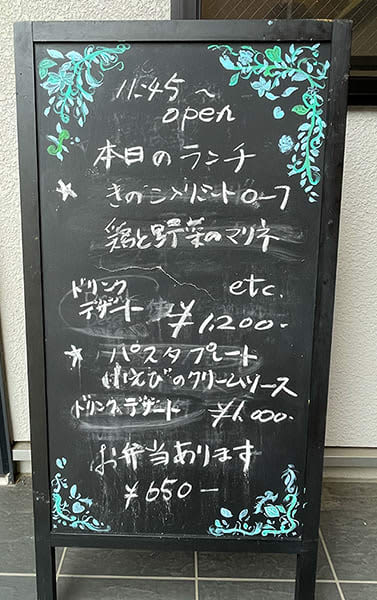 11:45～
open
本日のランチ
★ きのこメリミートローフ
鶏と野菜のマリネ
etc.
ドリンク
デザート ¥1,200-
★ パスタプレート
えびのクリームソース
ドリンク、デザート ¥1,000-
お弁当あります
¥650-